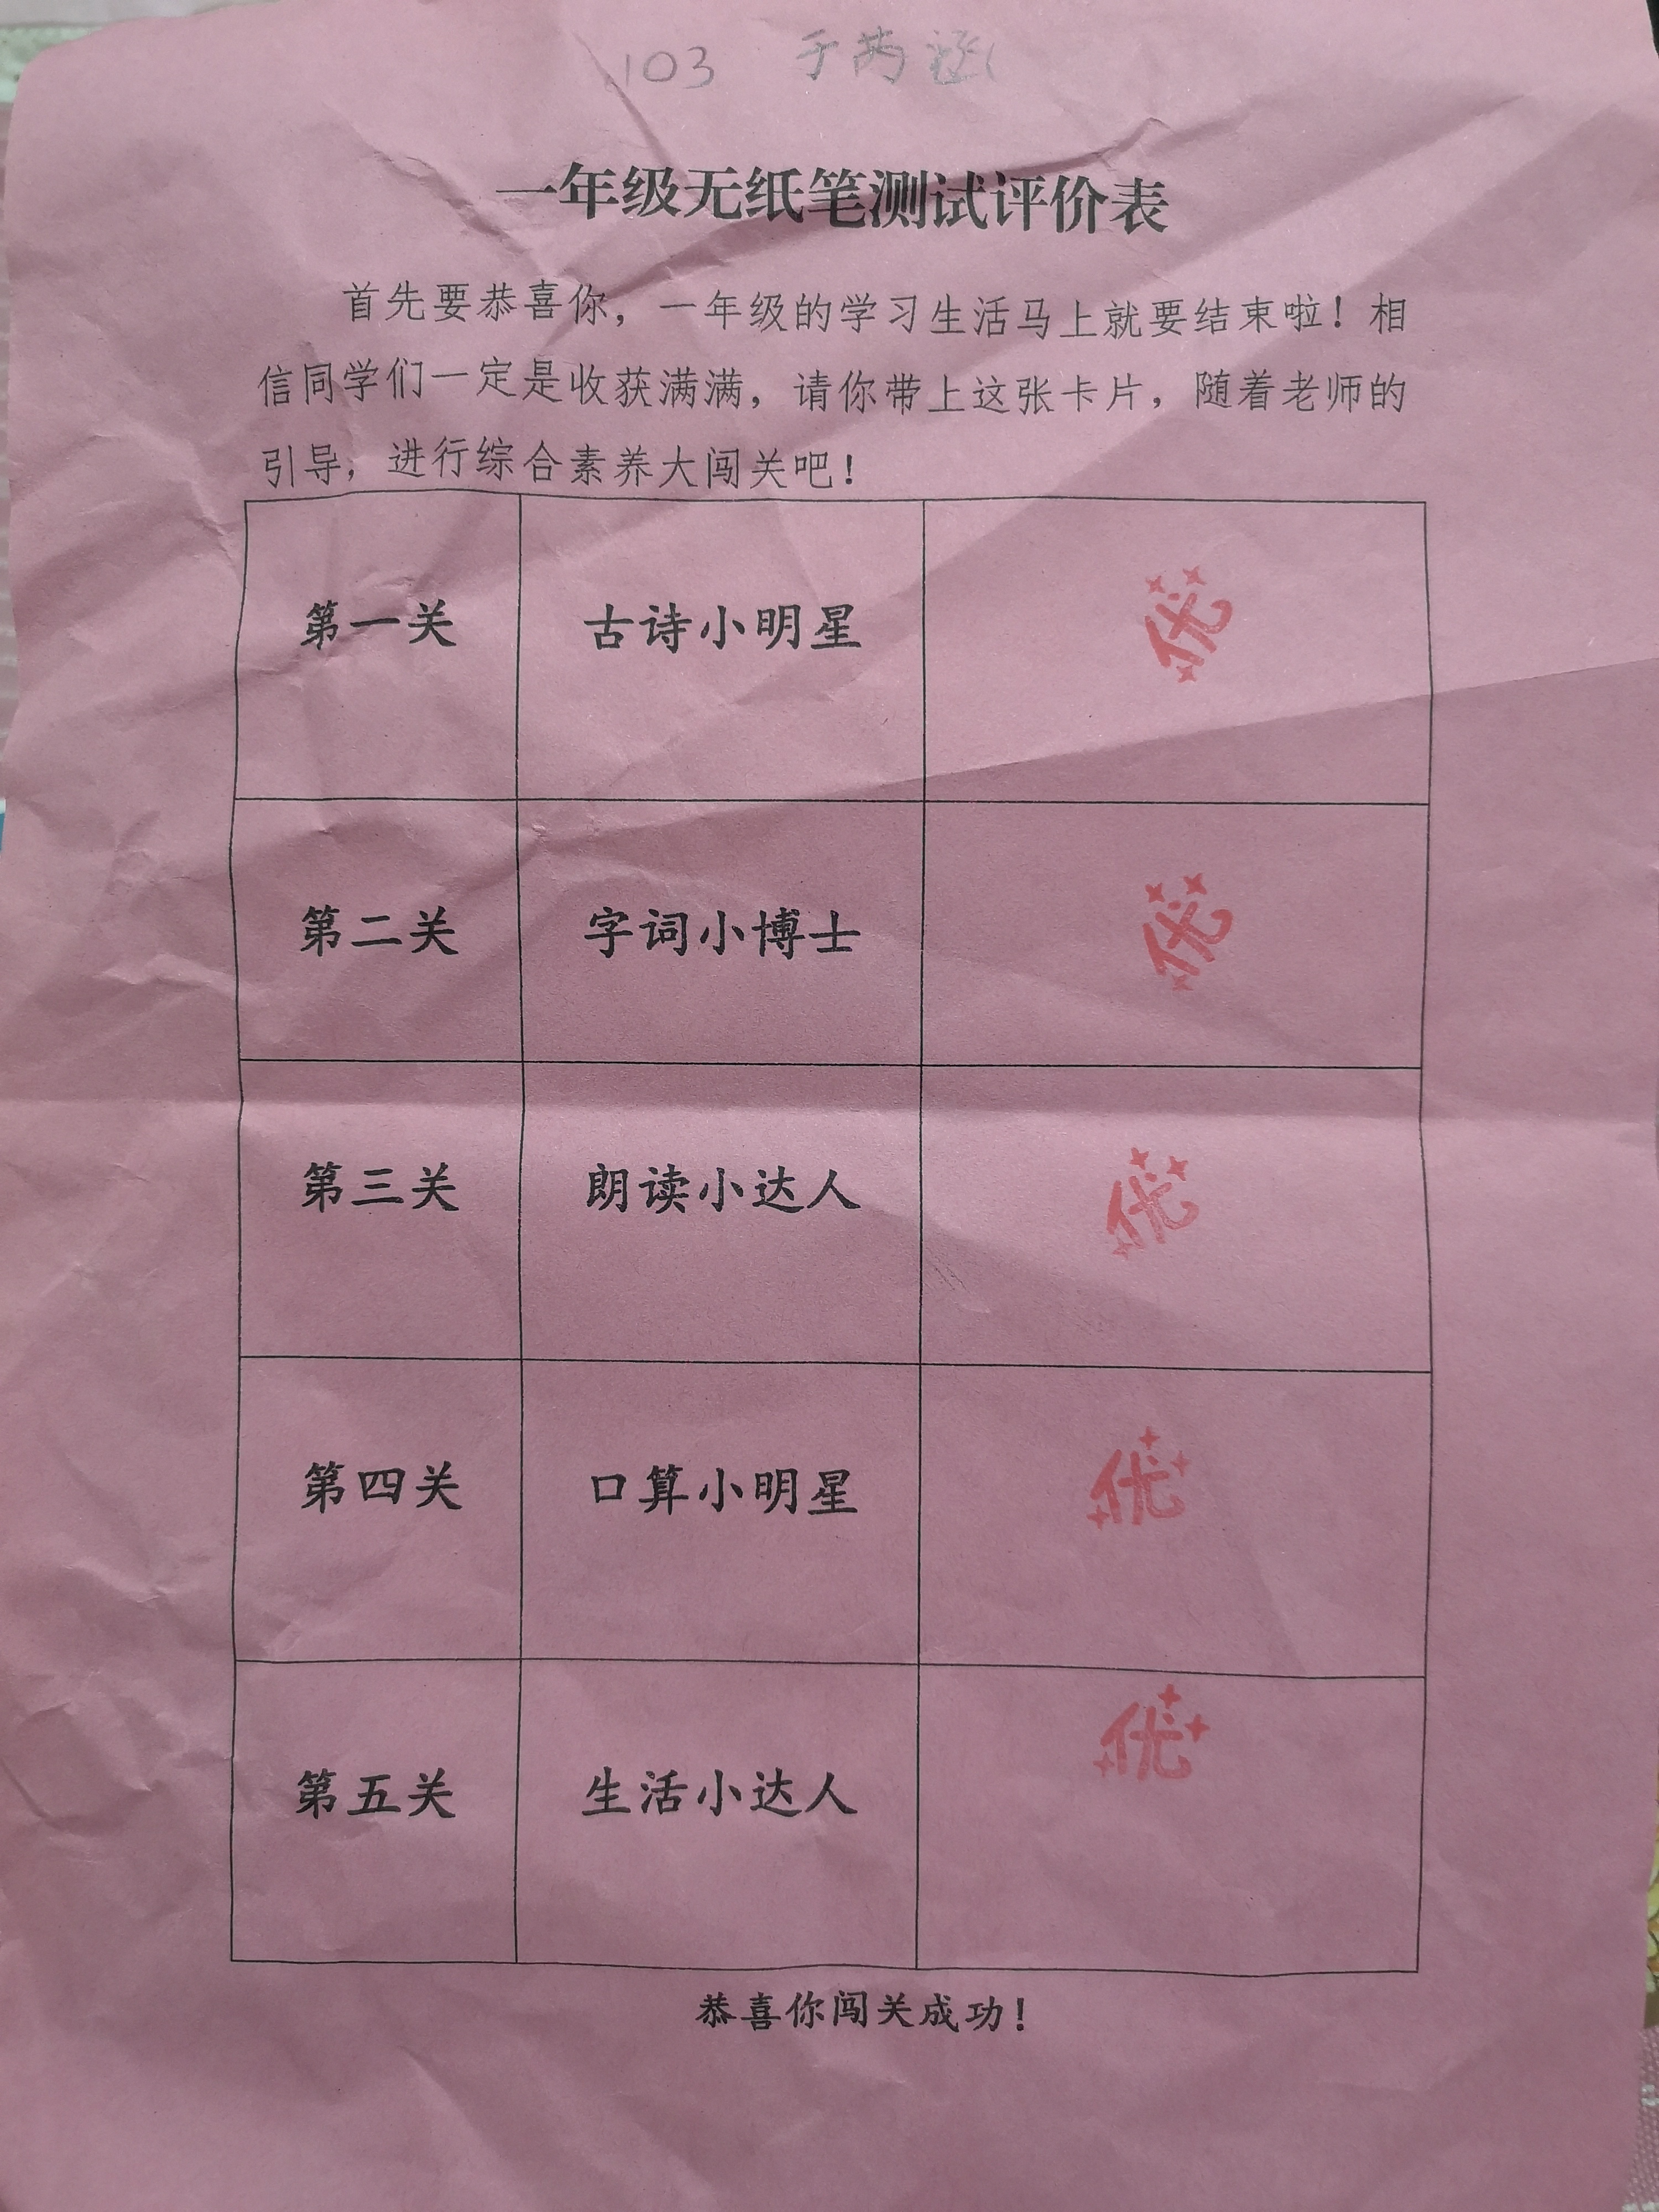 103 于芮
一年级无纸笔测试评价表
首先要恭喜你，一年级的学习生活马上就要结束啦！相
信同学们一定是收获满满，请你带上这张卡片，随着老师的
引导，进行综合素养大闯关吧！
第一关 古诗小明星 优
第二关 字词小博士 优
第三关 朗读小达人 优
第四关 口算小明星 优
第五关 生活小达人 优
恭喜你闯关成功！